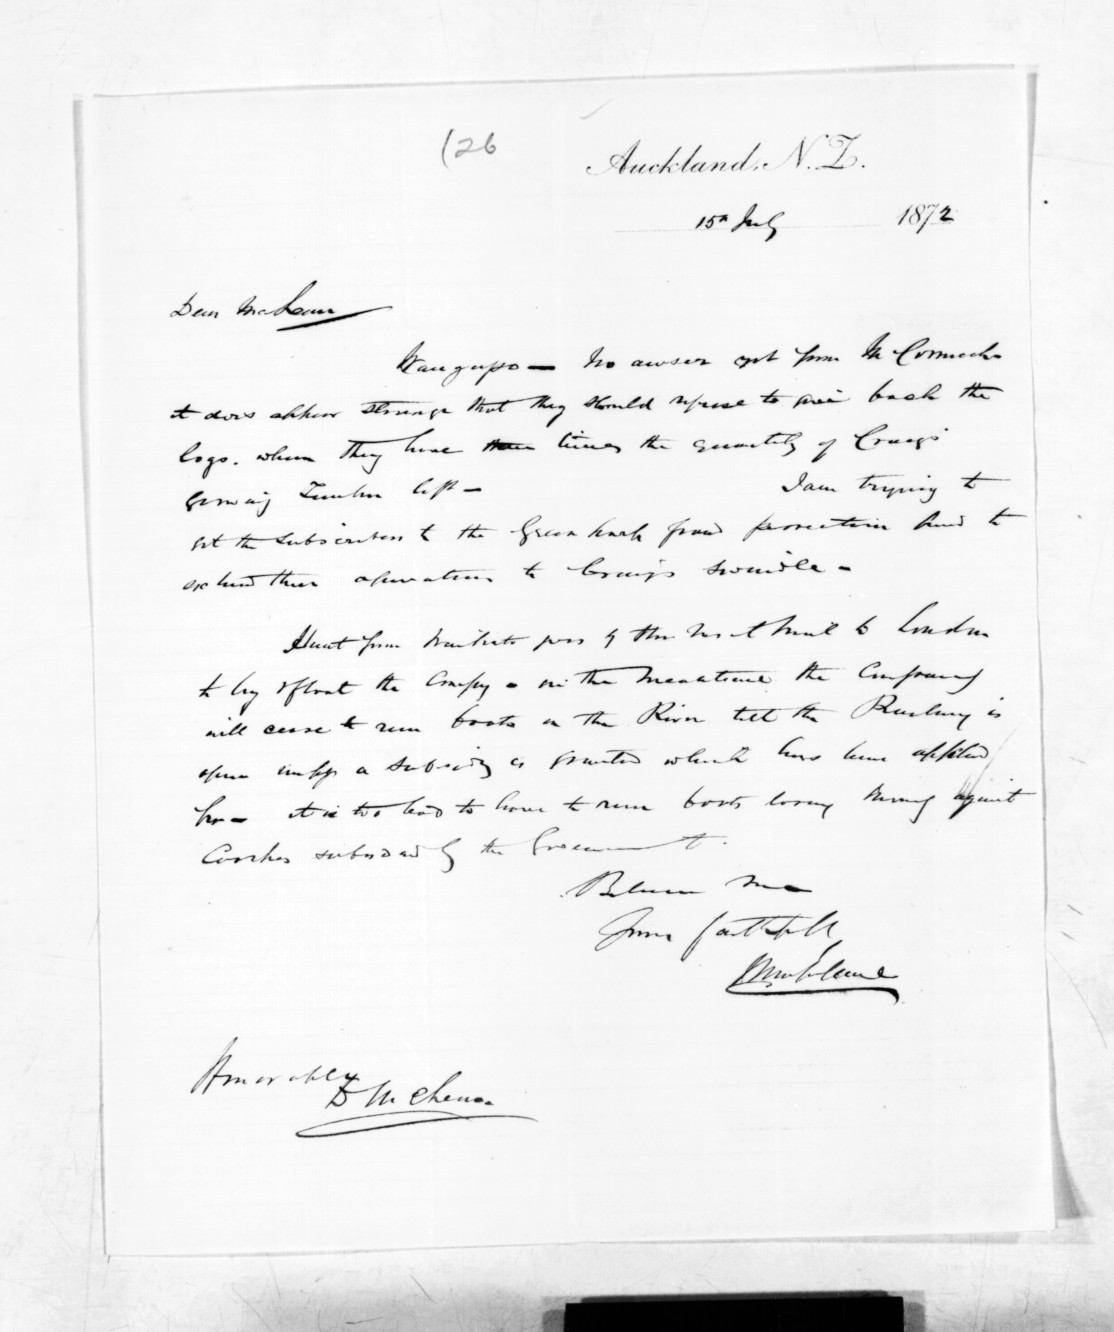 (26
Auckland, N.Z.
15th July 1872
Dear McLean
No answer yet from McCormick
it does appear strange that they should refuse to give back the
logs. when they have times the quantity of Craigs
growing Timber left —
I am trying to
get the subscribers to the fraud protection fund to
extend their operations to Craigs swindle —
Hunt from Waikato goes by the next mail to London
to try & float the Compy — in the meantime the Company
will cease to run boats on the River till the Railway is
open unless a subsidy is granted which has been applied
for — it is too bad to have to run boats losing money against
Coaches subsidised by the Government.
Believe me
Yours faithfully
Honorable
D McLean